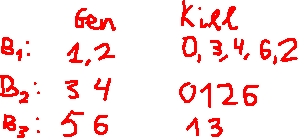 Gen Kill
B1: 1,2 0,3,4,6,2
B2: 3 4 0126
B3: 5 6 1 3